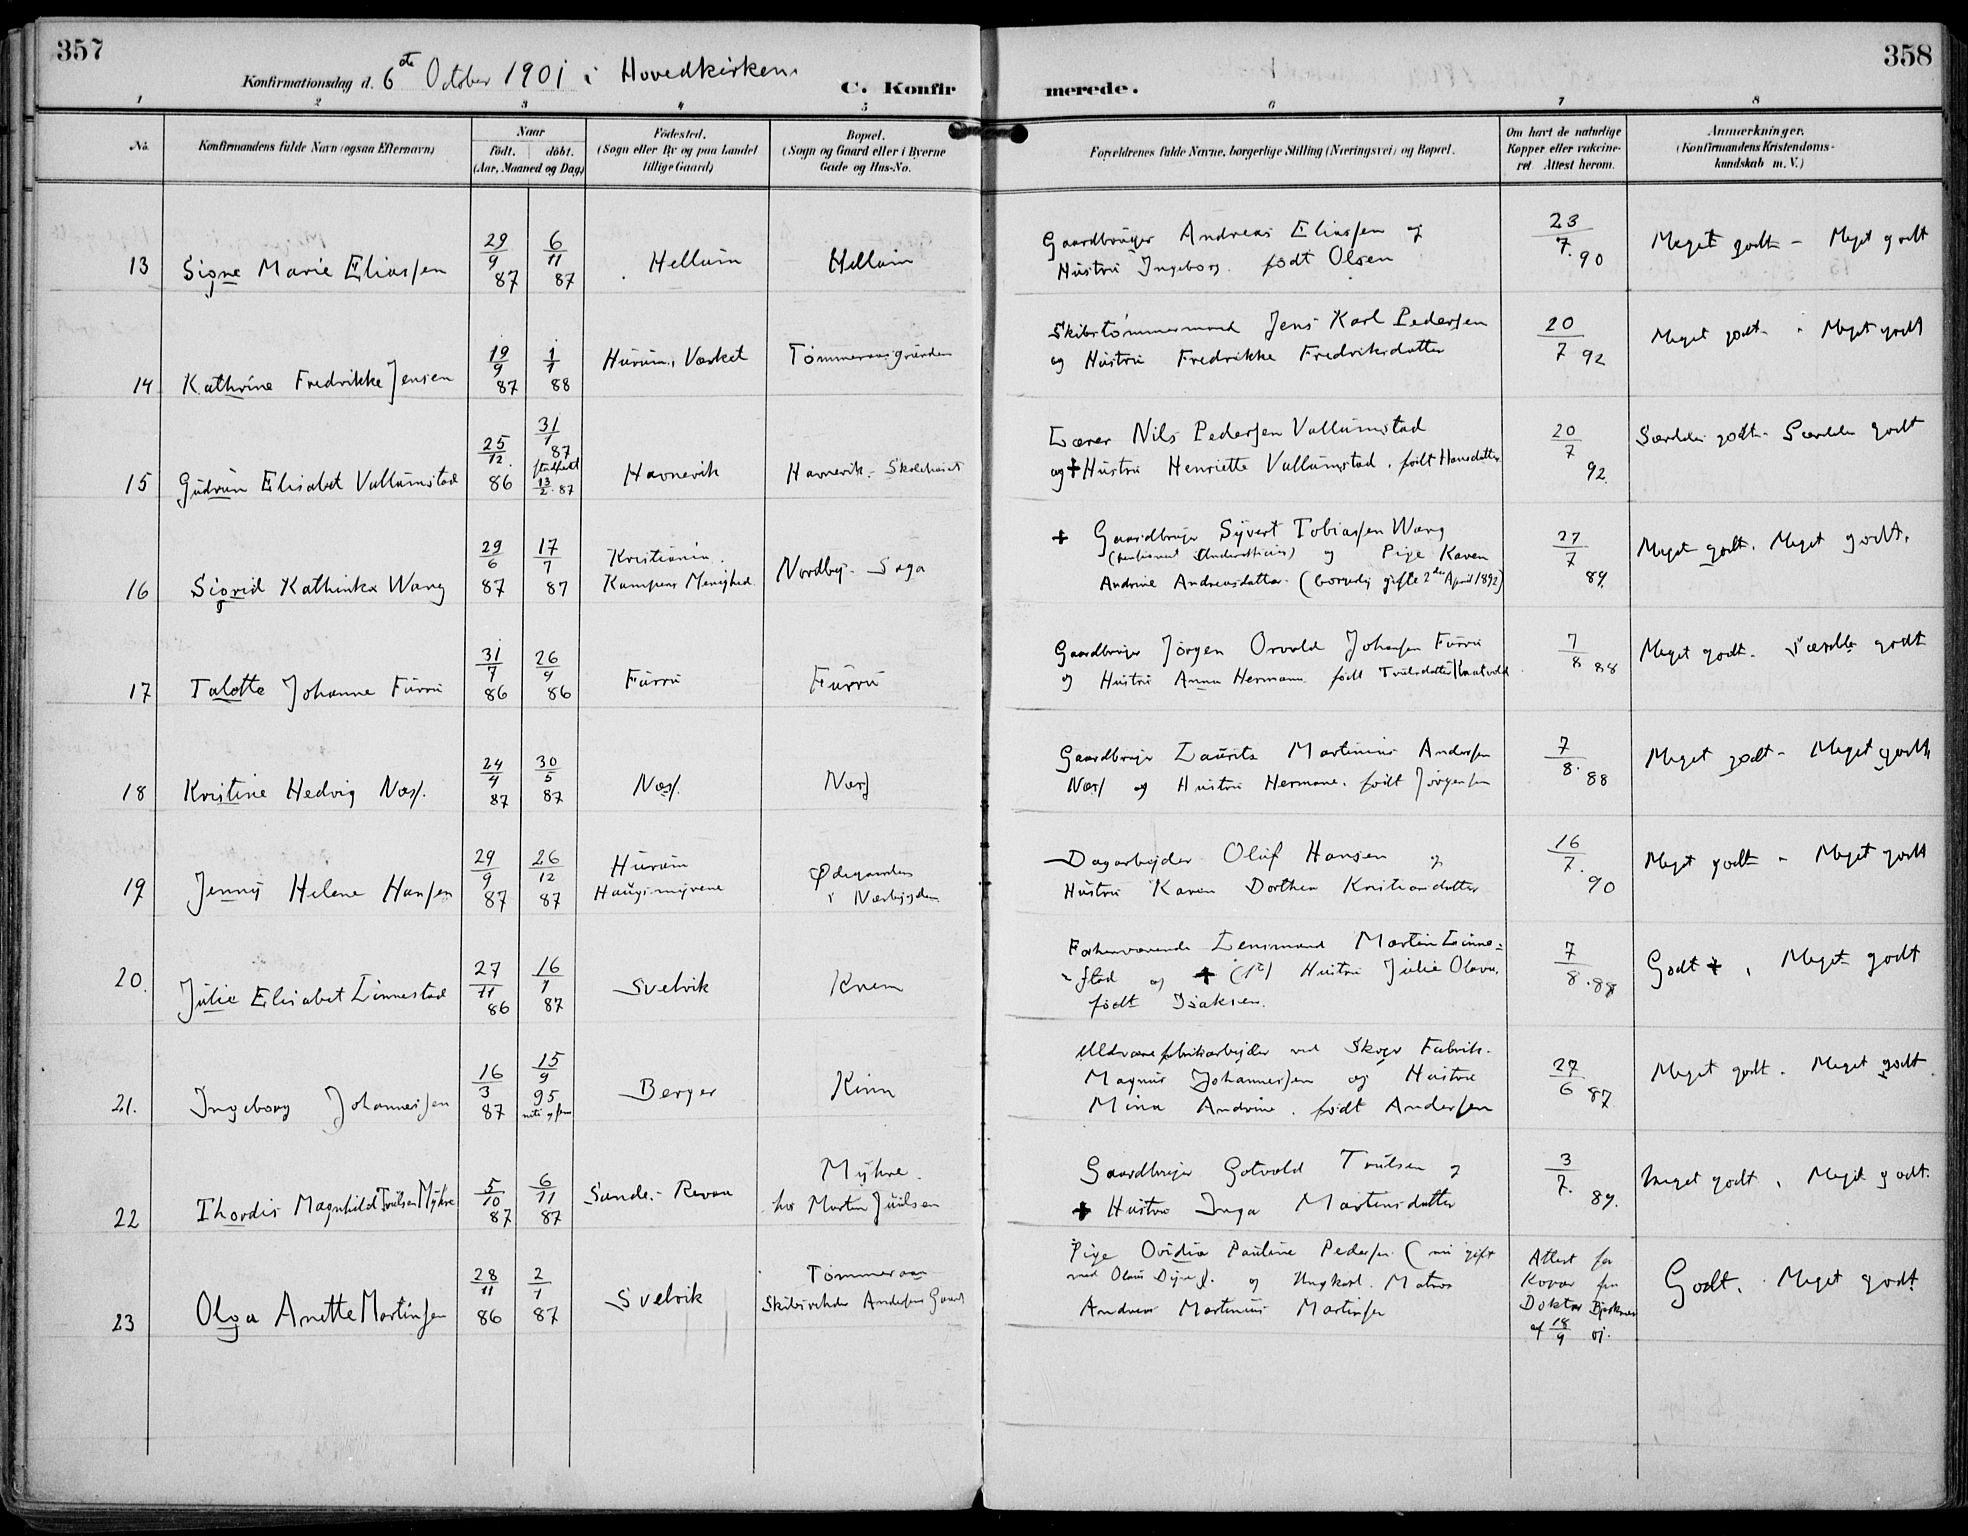 357
358
Konfirmationsdag d. 6te October 1901 i Hovedkirken.
C. Konfirmerede.
1 2 3 4 5 6 7 8
No.
Konfirmandens fulde Navn (ogsaa Efternavn)
Naar
født. døbt.
(Aar, Maaned og Dag)
Födested.
(Sogn eller By og paa Landet
tillige Gaard)
Bopæl.
(Sogn og Gaard eller i Byerne
Gade og Hus-No.
Forældrenes fulde Navne, borgerlige Stilling (Næringsvei) og Bopæl.
Om havt de naturlige
Kopper eller vakcine-
ret Attest herom.
Anmærkninger.
(Konfirmandens Kristendoms-
kundskab m. V.)
13 Signe Marie Eliassen 29/9 87 6/11 87 Hellum Hellum
Gaardbruger Andreas Eliassen og
Hustru Ingeborg. født Olsen
23/7. 90 Meget godt - Meget godt
14 Kathrine Fredrikke Jensen 19/9 87 1/1 88 Hurum, Værket Tømmeraasgrunden
Skibstømmermand Jens Karl Pedersen
og Hustru Fredrikke Fredriksdatter
20/7 92 Meget godt - Meget godt
15 Gudrun Elisabet Vallumstad 25/12. 86 31/1 87 stadfæst 13/2. 87 Havnevik Havnevik - Skolehuset
Lærer Nils Pedersen Vallumstad
og + Hustru Henriette Vallumstad. født Hansdatter
20/7 92. Særdeles godt - Særdeles godt
16 Sigrid Kathinka Wang 29/6 87 17/7 87 Kristiania. Kampens Menighed Nordby - Saga
+ Gaardbruger Syvert Tobiassen Wang
og Pige Karen
Andrine Andreasdatter (borgerlig gifte 2den April 1892)
27/7 89. Meget godt. Meget godt.
17 Talette Johanne Furru 31/7 86 26/9 86 Furru Furru
Gaardbruger Jørgen Osvald Johansen Furru
og Hustru Anna Hermana født Truelsdatter
7/8 88 Meget godt. Særdeles godt
18 Kristine Hedvig Næss. 24/4 87 30/5 87 Næss. Næss
Gaardbruger Laurits Martinius Andersen
Næss og Hustru Hermane. født Jørgensen
7/8. 88 Meget godt - Meget godt
19 Jenny Helene Hansen 29/9 87 26/12 87 Hurum Haugsmyrene Ødegaarden i Nærbygden
Dagarbejder Oluf Hansen og
Hustru Karen Dorthea Kristiansdatter
16/7. 90 Meget godt - Meget godt
20. Julie Elisabet Linnestad 27/11 86 16/1 87 Svelvik Knem
Forhenværende Lensmand Martin Linne=
=stad og + (1ste) Hustru Julie Olava.
født Isaksen.
7/8. 88 Godt +, Meget godt
21. Ingeborg Johannessen 16/3 87 15/9 95 niti og fem Berger Kinn
Uldvarefabrikarbejder ved Skoger Fabrik.
Magnus Johannessen og Hustru
Mina Andrine. født Andersen
27/6 87 Meget godt. Meget godt.
22 Thordis Magnhild Truelsen Myhre 5/10 87 6/11 87 Sande. - Revaa Myhre. hos Morten Juulsen
Gaardbruger Gotvold Truelsen og
+ Hustru Inga Martinsdatter
3/7. 89. Meget godt, Meget godt.
23 Olga Anette Martinsen 28/11 86 2/1 87 Svelvik Tømmeraas Skibsreder Andersens Gaard
Pige Ovidia Pauline Pedersen (nu gift
med Olaus og Ungkarl. Matros
Andreas Martinius Martinsen
Attest for Kopper fra Doktor Bjerknes af 18/9 01. Godt. Meget godt.